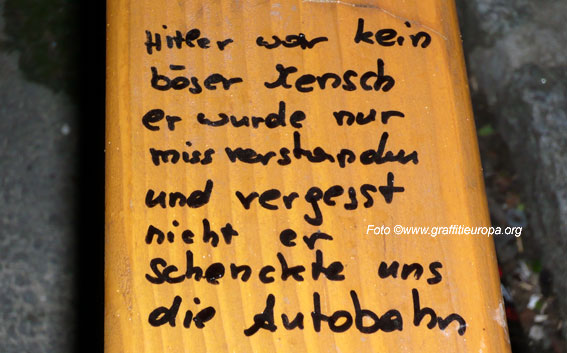 Hitler war kein
böser Mensch
er wurde nur
missverstanden
und vergesst
nicht er
schenckte uns
die Autobahn
Foto ©www.graffitieuropa.org